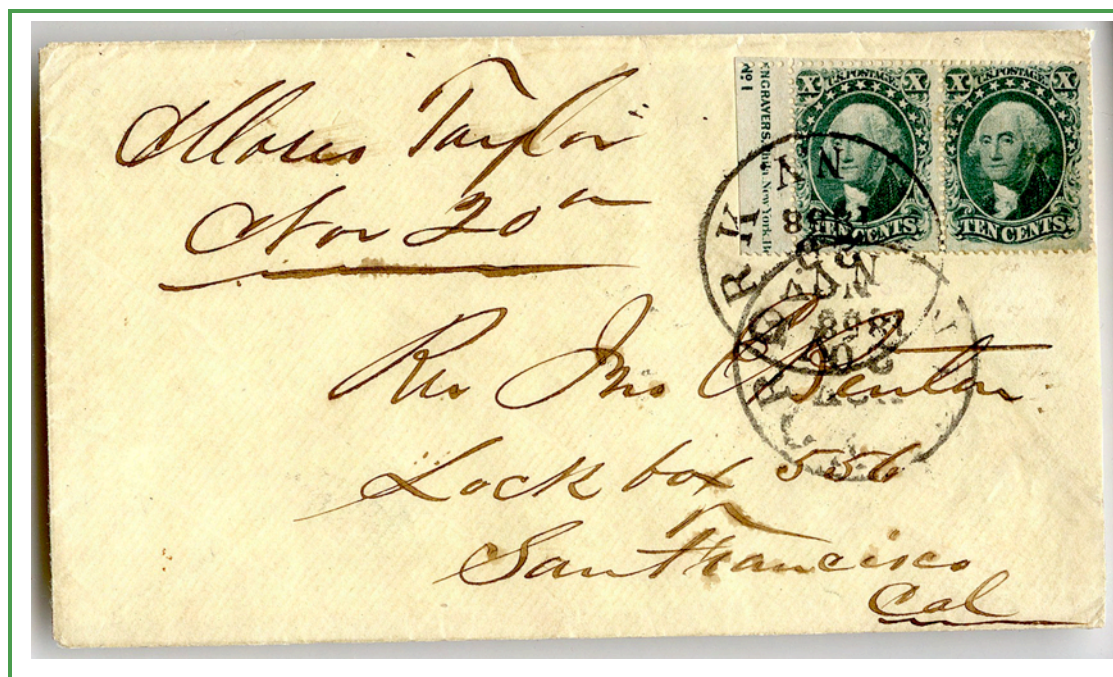 Moses Taylor
Nov 20th
ENGRAVERS, New York, 
No 1
X U.S. POSTAGE X
TEN CENTS
X U.S. POSTAGE X
TEN CENTS
Rev Jno C Benton
Lock box 556
San Francisco
Cal